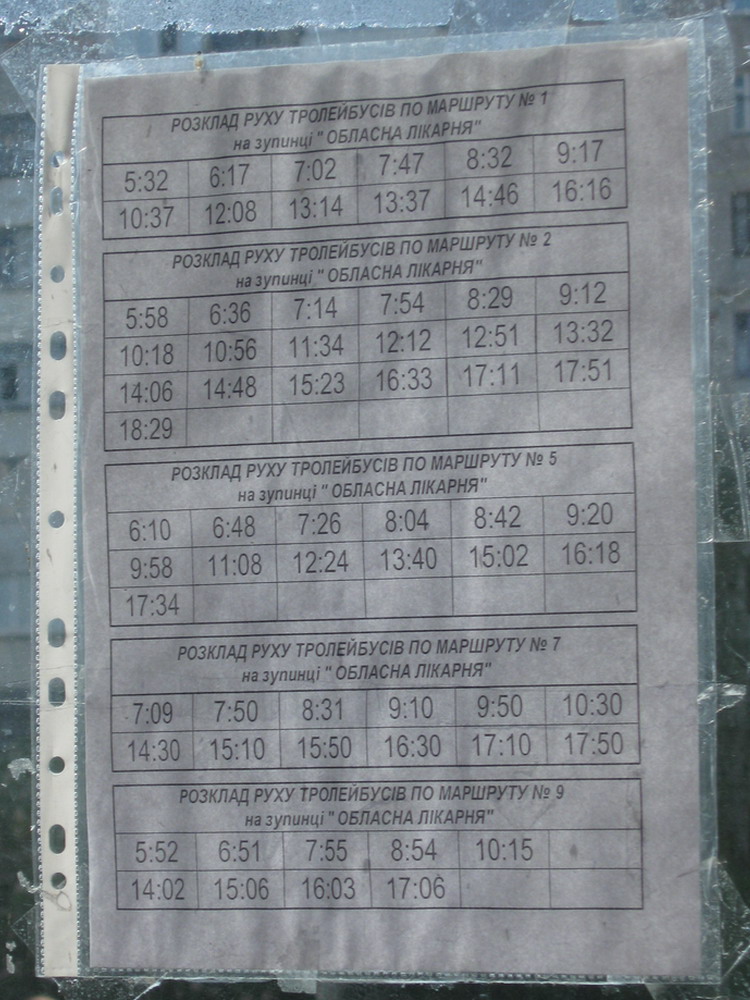 РОЗКЛАД РУХУ ТРОЛЕЙБУСІВ ПО МАРШРУТУ № 1
на зупинці " ОБЛАСНА ЛІКАРНЯ"
5:32 6:17 7:02 7:47 8:32 9:17
10:37 12:08 13:14 13:37 14:46 16:16
РОЗКЛАД РУХУ ТРОЛЕЙБУСІВ ПО МАРШРУТУ № 2
на зупинці " ОБЛАСНА ЛІКАРНЯ"
5:58 6:36 7:14 7:54 8:29 9:12
10:18 10:56 11:34 12:12 12:51 13:32
14:06 14:48 15:23 16:33 17:11 17:51
18:29
РОЗКЛАД РУХУ ТРОЛЕЙБУСІВ ПО МАРШРУТУ № 5
на зупинці " ОБЛАСНА ЛІКАРНЯ"
6:10 6:48 7:26 8:04 8:42 9:20
9:58 11:08 12:24 13:40 15:02 16:18
17:34
РОЗКЛАД РУХУ ТРОЛЕЙБУСІВ ПО МАРШРУТУ № 7
на зупинці " ОБЛАСНА ЛІКАРНЯ"
7:09 7:50 8:31 9:10 9:50 10:30
14:30 15:10 15:50 16:30 17:10 17:50
РОЗКЛАД РУХУ ТРОЛЕЙБУСІВ ПО МАРШРУТУ № 9
на зупинці " ОБЛАСНА ЛІКАРНЯ"
5:52 6:51 7:55 8:54 10:15
14:02 15:06 16:03 17:06